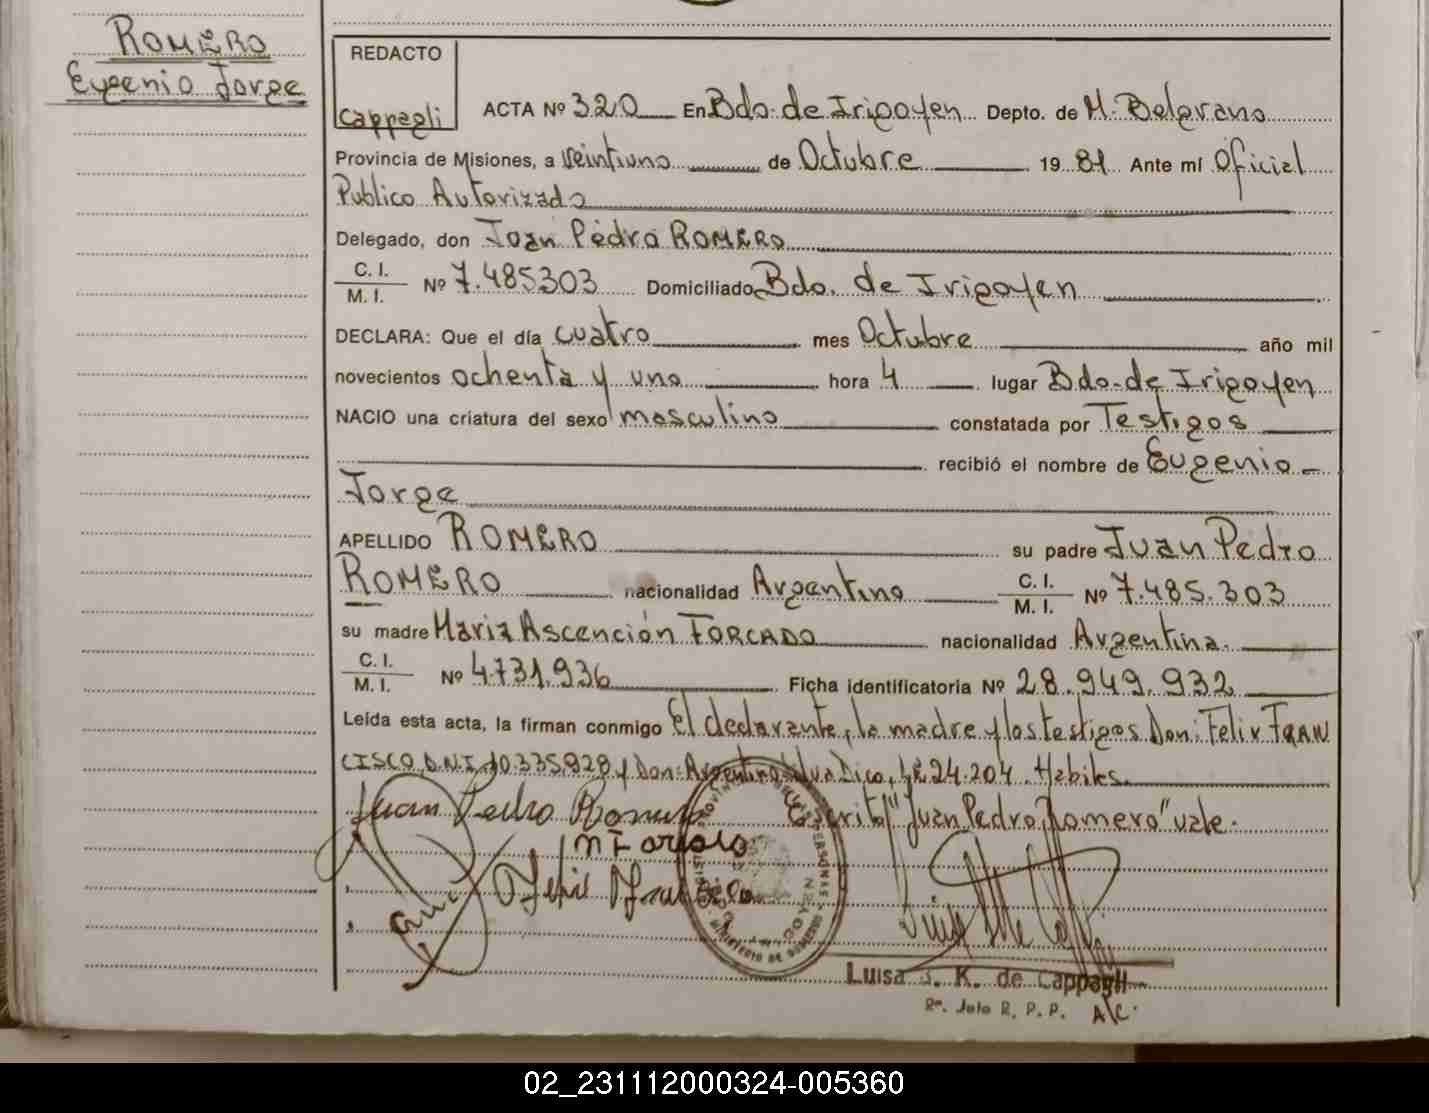 ROMERO
Eugenio Jorge
REDACTO
Cappagli
ACTA Nº 320 En Bdo. de Irigoyen Depto. de M. Belgrano
Provincia de Misiones, a veintiuno de Octubre 19 81 Ante mí Oficial
Publico Autorizado
Delegado, don Juan Pedro ROMERO
C. I.
M. I. Nº 7.485303 Domiciliado Bdo. de Irigoyen
DECLARA: Que el día cuatro mes Octubre año mil
novecientos ochenta y uno hora 4 lugar Bdo. de Irigoyen
NACIO una criatura del sexo masculino constatada por Testigos
recibió el nombre de Eugenio
Jorge
APELLIDO ROMERO su padre Juan Pedro
ROMERO nacionalidad Argentino C. I. M. I. Nº 7.485.303
su madre Maria Ascención FORCADO nacionalidad Argentina.
C. I.
M. I. Nº 4.731.936 Ficha identificatoria Nº 28.949.932
Leída esta acta, la firman conmigo El declarante, la madre y los testigos Don: FELIX FRAN
CISCO D.N.I. 10.335.928 y Don: Argentino Dico, 24.204. Habiles.
Juan Pedro Romero "Juan Pedro Romero" vale.
Luisa S. K. de Cappagli
A/C.
02_231112000324-005360